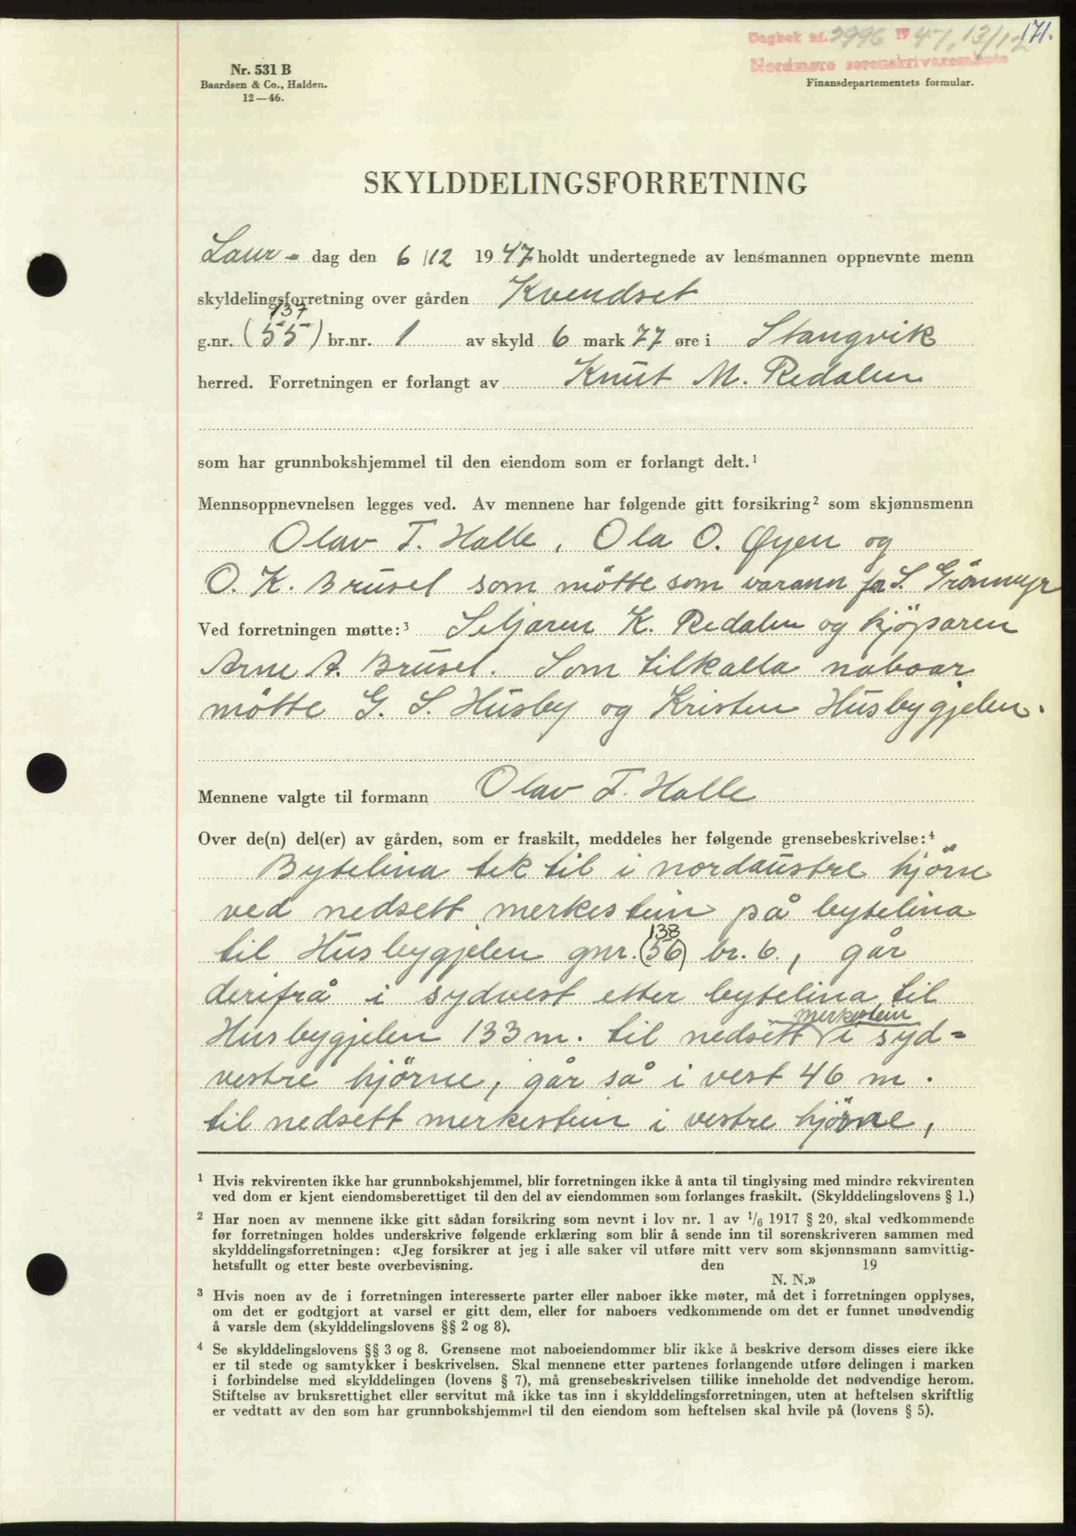 171.
Dagbok nr. 2996 1947, 13/12
Nordmøre sorenskriverembete
Nr. 531 B
Baardsen & Co., Halden.
12—46.
Finansdepartementets formular.
SKYLDDELINGSFORRETNING
Laur- dag den 6/12 1947 holdt undertegnede av lensmannen oppnevnte menn
skyldelingsforretning over gården Kvendset
137
g.nr. (55) br.nr. 1 av skyld 6 mark 77 øre i Stangvik
herred. Forretningen er forlangt av Knut M. Redalen
som har grunnbokshjemmel til den eiendom som er forlangt delt.¹
Mennsoppnevnelsen legges ved. Av mennene har følgende gitt forsikring² som skjønnsmenn
Olav T. Halle, Ola O. Øyen og
O. K. Brusel som møtte som varann for S. Grönmyr
Ved forretningen møtte:³ Seljaren K. Redalen og kjöparen
Arne A. Brusel. Som tilkalla naboar
møtte G. S. Husby og Kristen Husbygjelen.
Mennene valgte til formann Olav T. Halle
Over de(n) del(er) av gården, som er fraskilt, meddeles her følgende grensebeskrivelse:⁴
Bytelina tek til i nordaustre hjörne
ved nedsett merkestein på bytelina
138
til Husbygjelen gnr. (56) br. 6, går
derifrå i sydvest etter bytelina til
merkestein
Husbygjelen 133 m. til nedsett i syd-
vestre hjörne, går så i vest 46 m.
til nedsett merkestein i vestre hjörne,
¹ Hvis rekvirenten ikke har grunnbokshjemmel, blir forretningen ikke å anta til tinglysing med mindre rekvirenten
ved dom er kjent eiendomsberettiget til den del av eiendommen som forlanges fraskilt. (Skylddelingslovens § 1.)
² Har noen av mennene ikke gitt sådan forsikring som nevnt i lov nr. 1 av 1/6 1917 § 20, skal vedkommende
før forretningen holdes underskrive følgende erklæring som blir å sende inn til sorenskriveren sammen med
skylddelingsforretningen: «Jeg forsikrer at jeg i alle saker vil utføre mitt verv som skjønnsmann samvittig-
hetsfullt og etter beste overbevisning. den 19
N. N.»
³ Hvis noen av de i forretningen interesserte parter eller naboer ikke møter, må det i forretningen opplyses,
om det er godtgjort at varsel er gitt dem, eller for naboers vedkommende om det er funnet unødvendig
å varsle dem (skylddelingslovens §§ 2 og 8).
⁴ Se skylddelingslovens §§ 3 og 8. Grensene mot naboeiendommer blir ikke å beskrive dersom disses eiere ikke
er til stede og samtykker i beskrivelsen. Skal mennene etter partenes forlangende utføre delingen i marken
i forbindelse med skylddelingen (lovens § 7), må grensebeskrivelsen tillike inneholde det nødvendige herom.
Stiftelse av bruksrettighet eller servitut må ikke tas inn i skylddelingsforretningen, uten at heftelsen skriftlig
er vedtatt av den som har grunnbokshjemmel til den eiendom som heftelsen skal hvile på (lovens § 5).